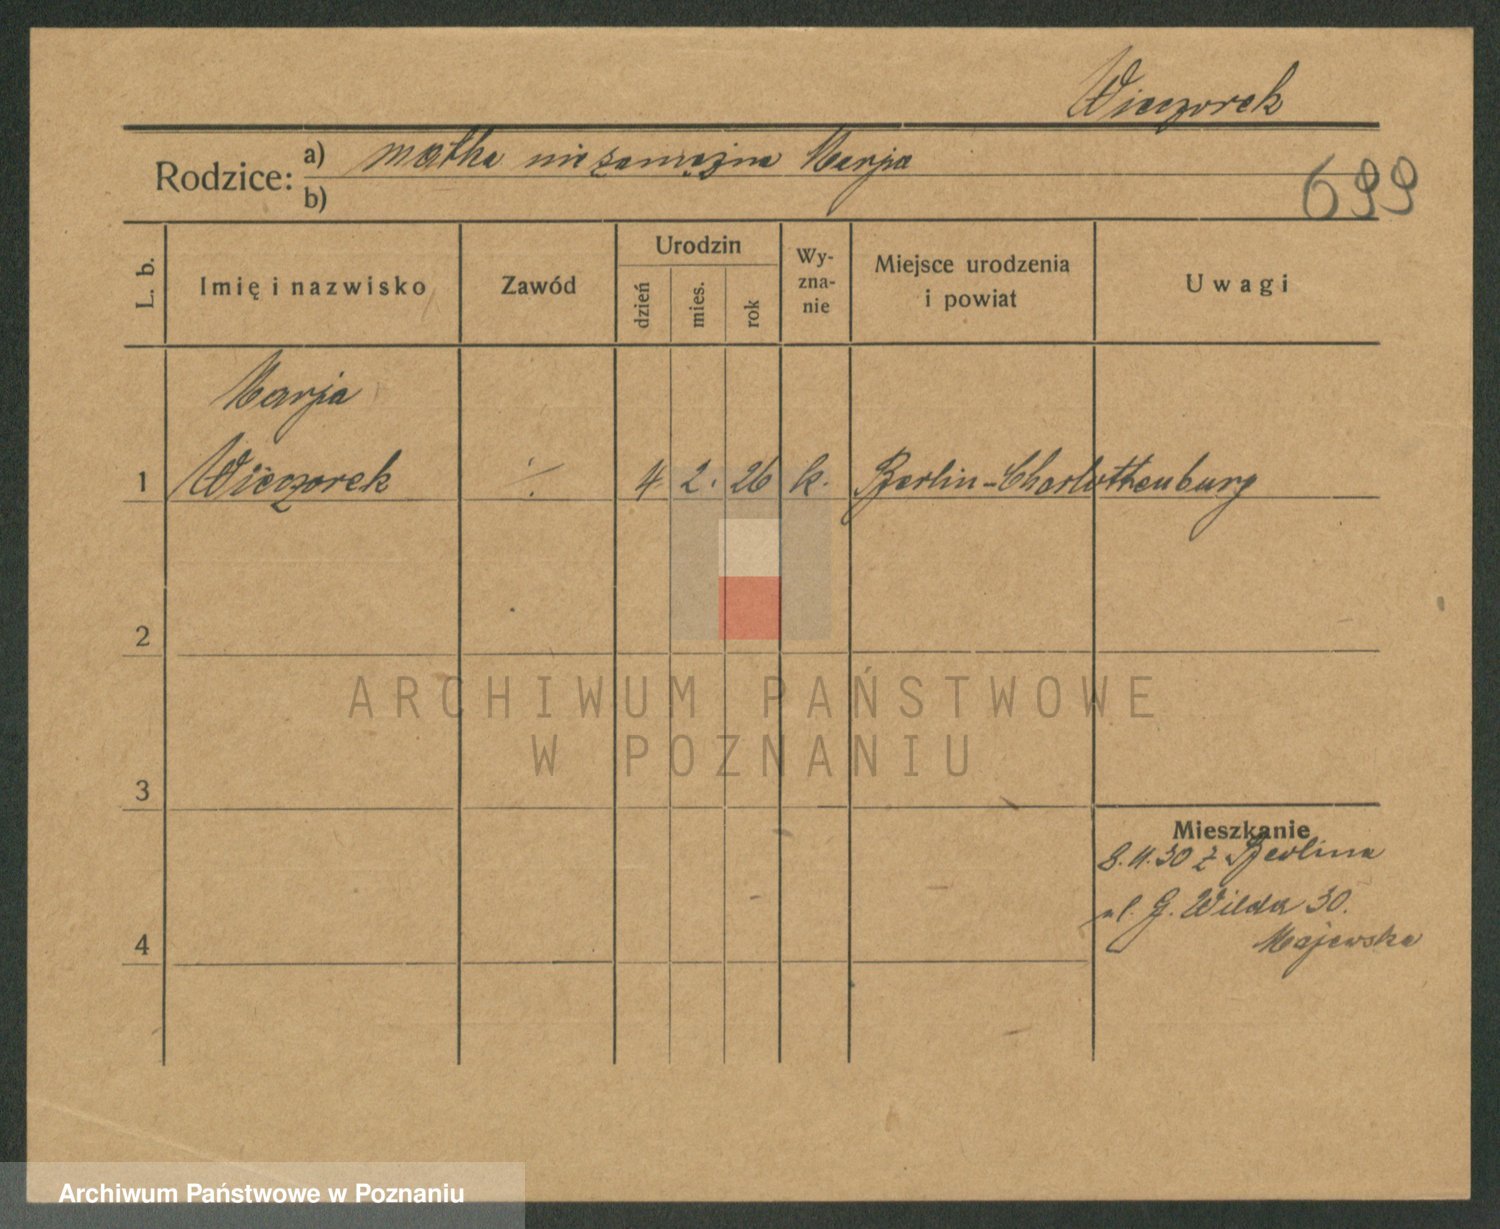 Wieczorek
Rodzice: a) matka niezamężna Marja
b)
699
L. b. Imię i nazwisko Zawód Urodzin dzień mies. rok Wyznanie Miejsce urodzenia i powiat Uwagi
Marja
1 Wieczorek ·/· 4 2. 26 k. Berlin-Charlottenburg
2
ARCHIWUM PAŃSTWOWE
W POZNANIU
3
Mieszkanie
8.11.30 z Berlina
ul. G. Wilda 30.
Majewska
4
Archiwum Państwowe w Poznaniu